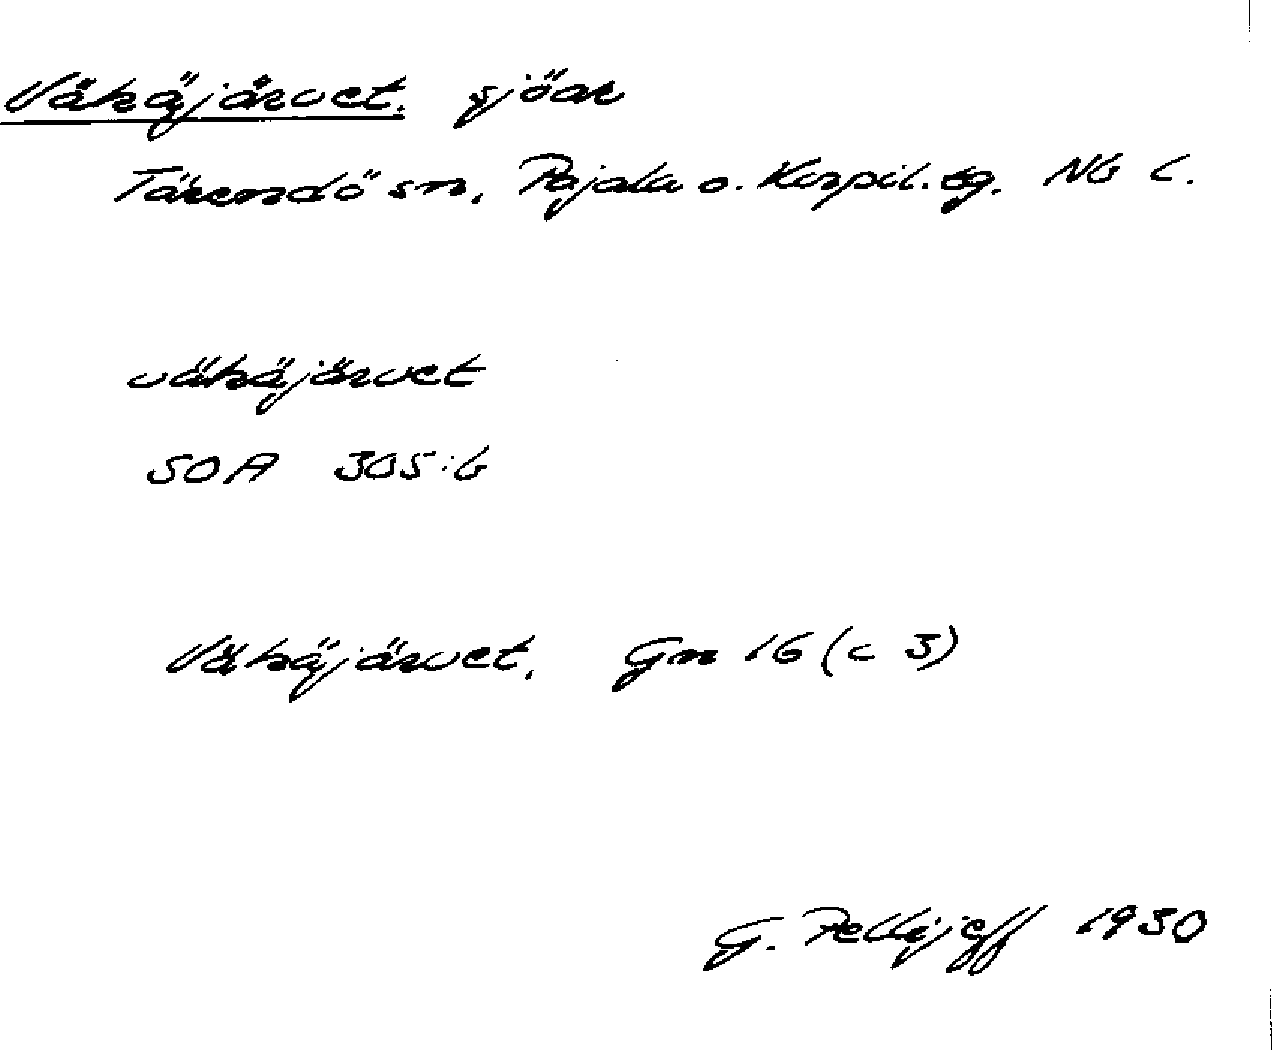 Vähäjärvet. sjöar
Tärendö sn, Pajala o. Korpil. tg. NB L.
vähäjärvet
SOA 305:6
Vähäjärvet, Gm 16 (c 3)
G. Pellijeff 1930